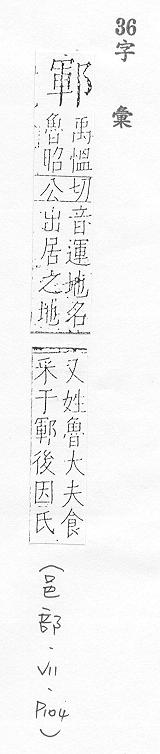 36
字彙
鄆
禹慍切音運地名
魯昭公出居之地
又姓魯大夫食
采于鄆後因氏
(邑部.VII.P104)